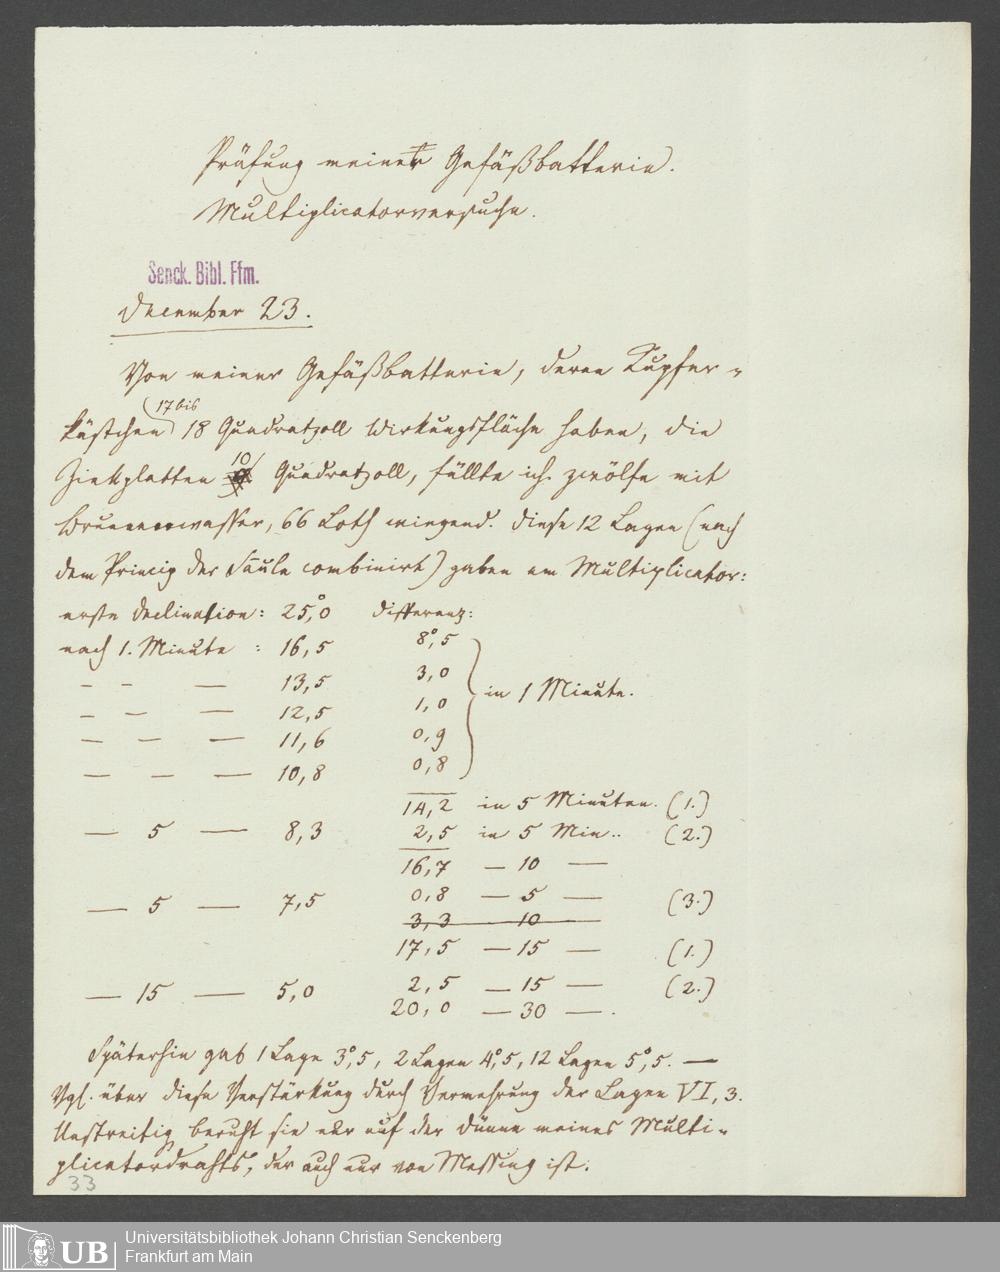 Prüfung meiner Gefäßbatterie.
Multiplicatorversuche.
Senck. Bibl. Ffm.
December 23.
Von meiner Gefäßbatterie, deren Kupfer-
kästchen 17 bis 18 Quadratzoll Wirkungsfläche haben, die
Zinkplatten 10 Quadratzoll, füllte ich zwölfe mit
Brunnenwasser, 66 Loth wiegend. Diese 12 Lagen (nach
dem Princip der Säule combinirt) gaben am Multiplicator:
erste Declination: 25°,0 Differenz:
nach 1. Minute : 16,5 8°,5
– – — 13,5 3,0 in 1 Minute.
– – — 12,5 1,0
— — — 11,6 0,9
— — — 10,8 0,8
14,2 in 5 Minuten. (1.)
— 5 — 8,3 2,5 in 5 Min.. (2.)
16,7 — 10 —
— 5 — 7,5 0,8 — 5 — (3.)
3,3 10
17,5 — 15 — (1.)
— 15 — 5,0 2,5 — 15 — (2.)
20,0 — 30 —.
Späterhin gab 1 Lage 3°,5, 2 Lagen 4°,5, 12 Lagen 5°,5. —
Vgl. über diese Verstärkung durch Vermehrung der Lagen VI, 3.
Unstreitig beruht sie nur auf der Dünne meines Multi-
plicatordrahts, der auch nur von Messing ist.
33
UB
Universitätsbibliothek Johann Christian Senckenberg
Frankfurt am Main